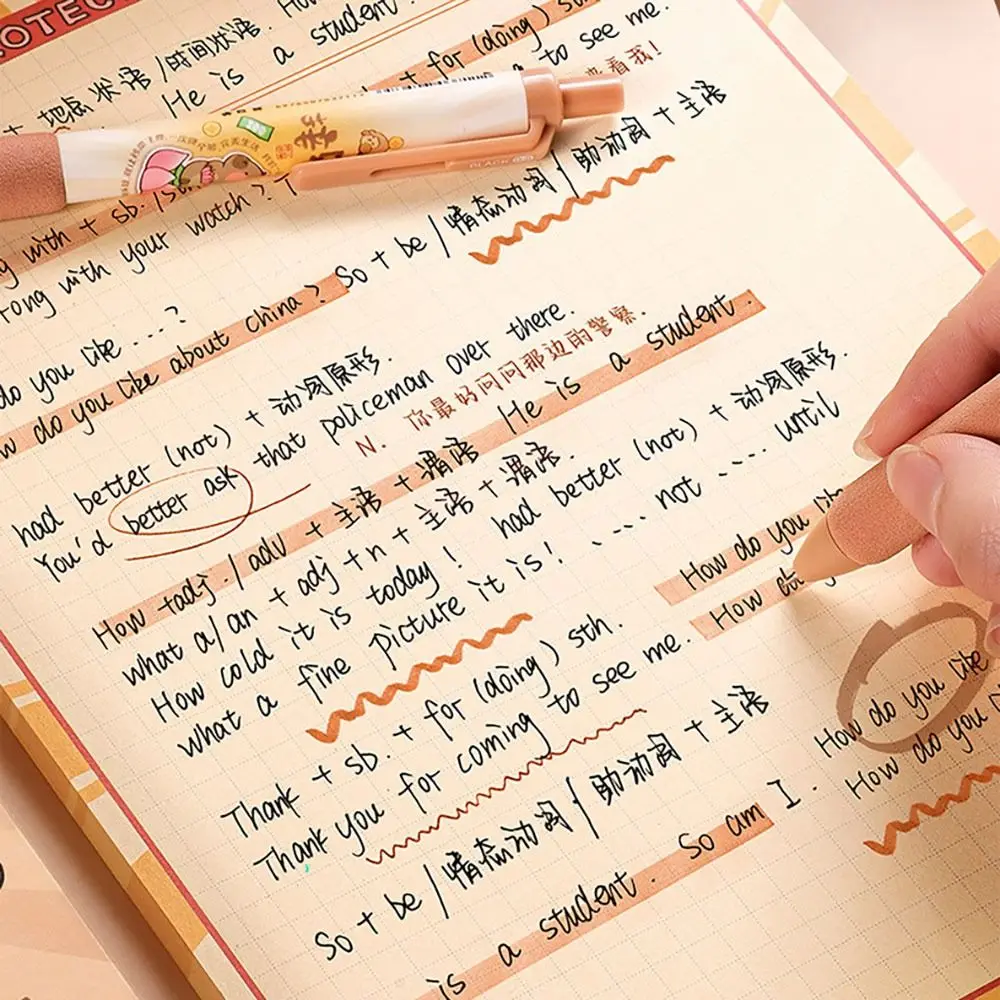 OTEC
+ 地点状语 / 时间状语. How
He is a student.
+ for (doing) s
to see me.
来看我!
BLACK
g with + sb. /s
rong with your watch?
So + be / 情态动词 / 助动词 + 主语
do you like ....?
w do you like about china?
had better (not) + 动词原形.
You'd better ask that policeman over there.
N. 你最好问问那边的警察.
How +adj. / adv + 主语 + 谓语 He is a student.
what a/an + adj +n + 主语 + 谓语.
How cold it is today! had better (not) + 动词原形.
what a fine picture it is! .... not .... until
How do you
How
Thank + sb. + for (doing) sth.
Thank you for coming to see me.
How do you like
How do you
So + be / 情态动词 / 助动词 + 主语
is a student. So am I.